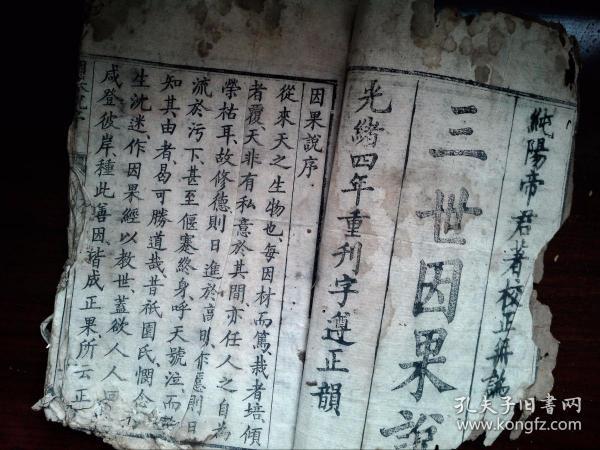 純陽帝君著校正無訛
三世因果說
光緒四年重刊字遵正韻
因果說序
從來天之生物也、每因材而篤、栽者培、傾
者覆、天非有私意於其間、亦任人之自為
榮枯耳、故修德則日進於高明、作惡則日
流於污下、甚至偃蹇終身、呼天號泣而
知其由者、曷可勝道哉、昔祇園氏、憫念
生沈迷、作因果經以救世、蓋欲人人
咸登彼岸、種此善因、揩成正果、所云正
孔夫子旧书网